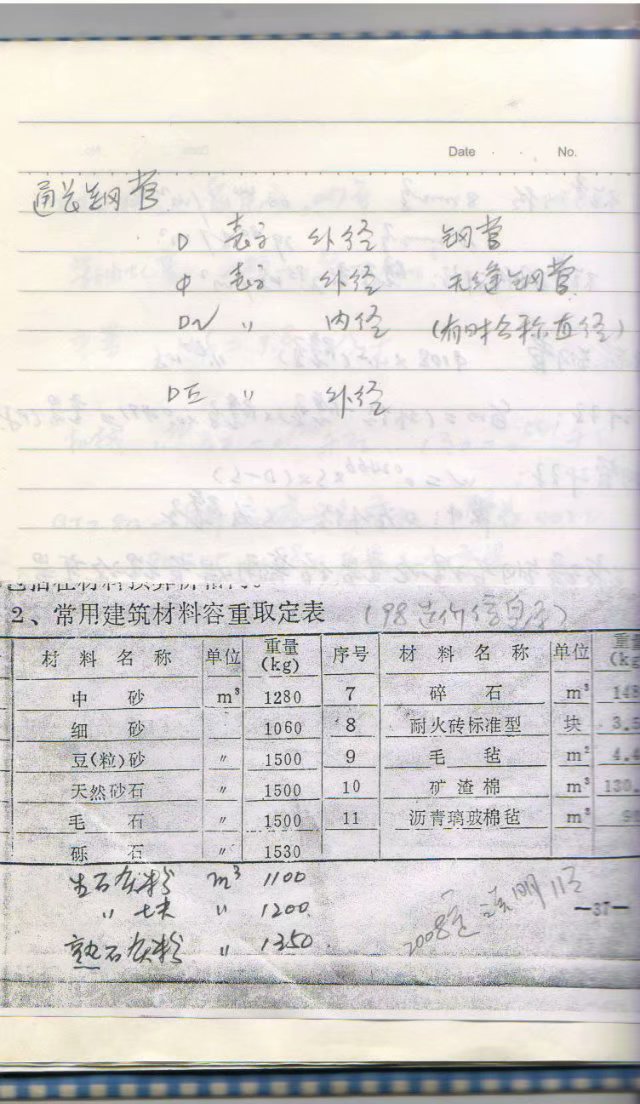 Date No.
钢管
D 表示 外径 钢管
Φ 表示 外径 无缝钢管
DN 〃 内径 (有时公称直径)
DE 〃 外径
2、常用建筑材料容重取定表 (98造价信息)
材 料 名 称 单位 重量(kg) 序号 材 料 名 称 单位
中 砂 m³ 1280 7 碎 石 m³
细 砂 1060 8 耐火砖标准型 块 3.5
豆(粒)砂 〃 1500 9 毛 毡 m² 4.4
天然砂石 〃 1500 10 矿 渣 棉 m³ 130.
毛 石 〃 1500 11 沥青璃玻棉毡 m³
砾 石 〃 1530
生石灰粉 m³ 1100
〃 块 〃 1200
熟石灰粉 〃 1350
2008 说明
—37—